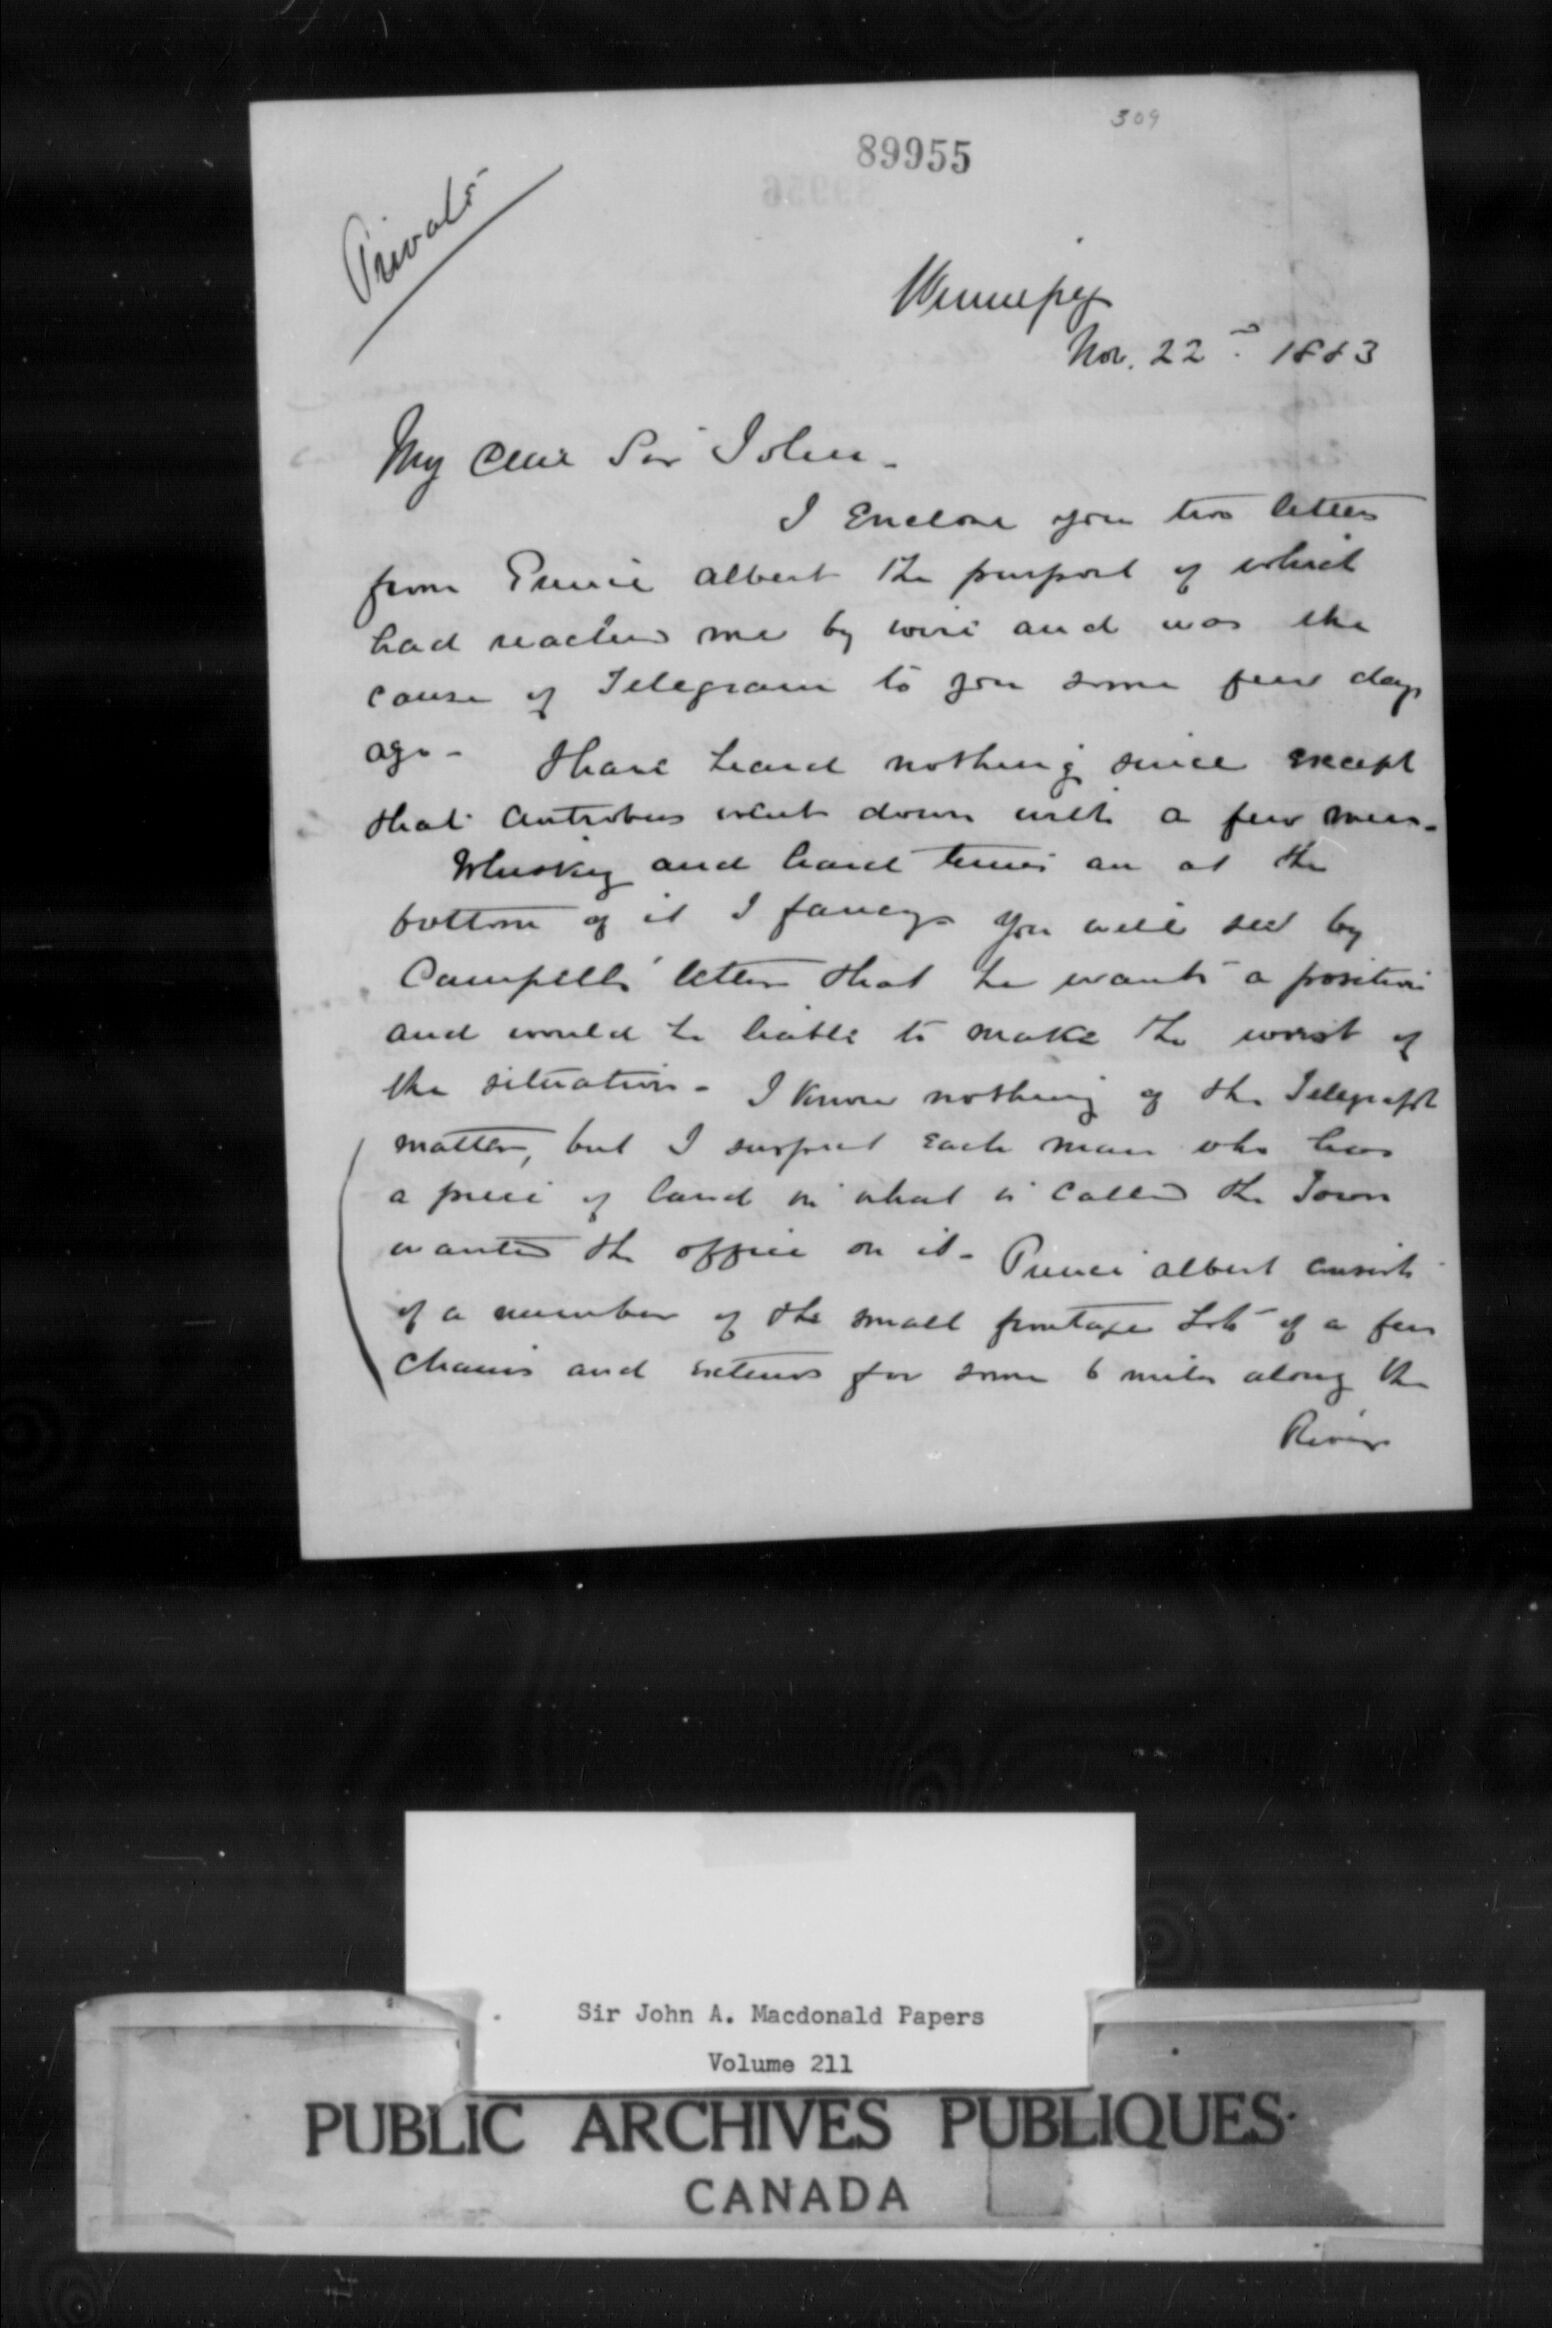 309
89955
Private
Winnipeg
Nov. 22nd. 1883
My dear Sir John -
I Enclose you two letters
from Prince Albert the purport of which
had reached me by wire and was the
cause of Telegram to you some few days
ago - I have heard nothing since except
that Antrobus went down with a few men -
Whiskey and hard times are at the
bottom of it I fancy - You will see by
Campbell's letter that he wants a position
and would be liable to make the worst of
the situation - I know nothing of the Telegraph
matter, but I suspect Each man who has
a piece of land in what is called the Town
wanted the office on it - Prince Albert consists
of a number of the small frontage Lots of a few
chains and extends for some 6 miles along the
River
Sir John A. Macdonald Papers
Volume 211
PUBLIC ARCHIVES PUBLIQUES
CANADA